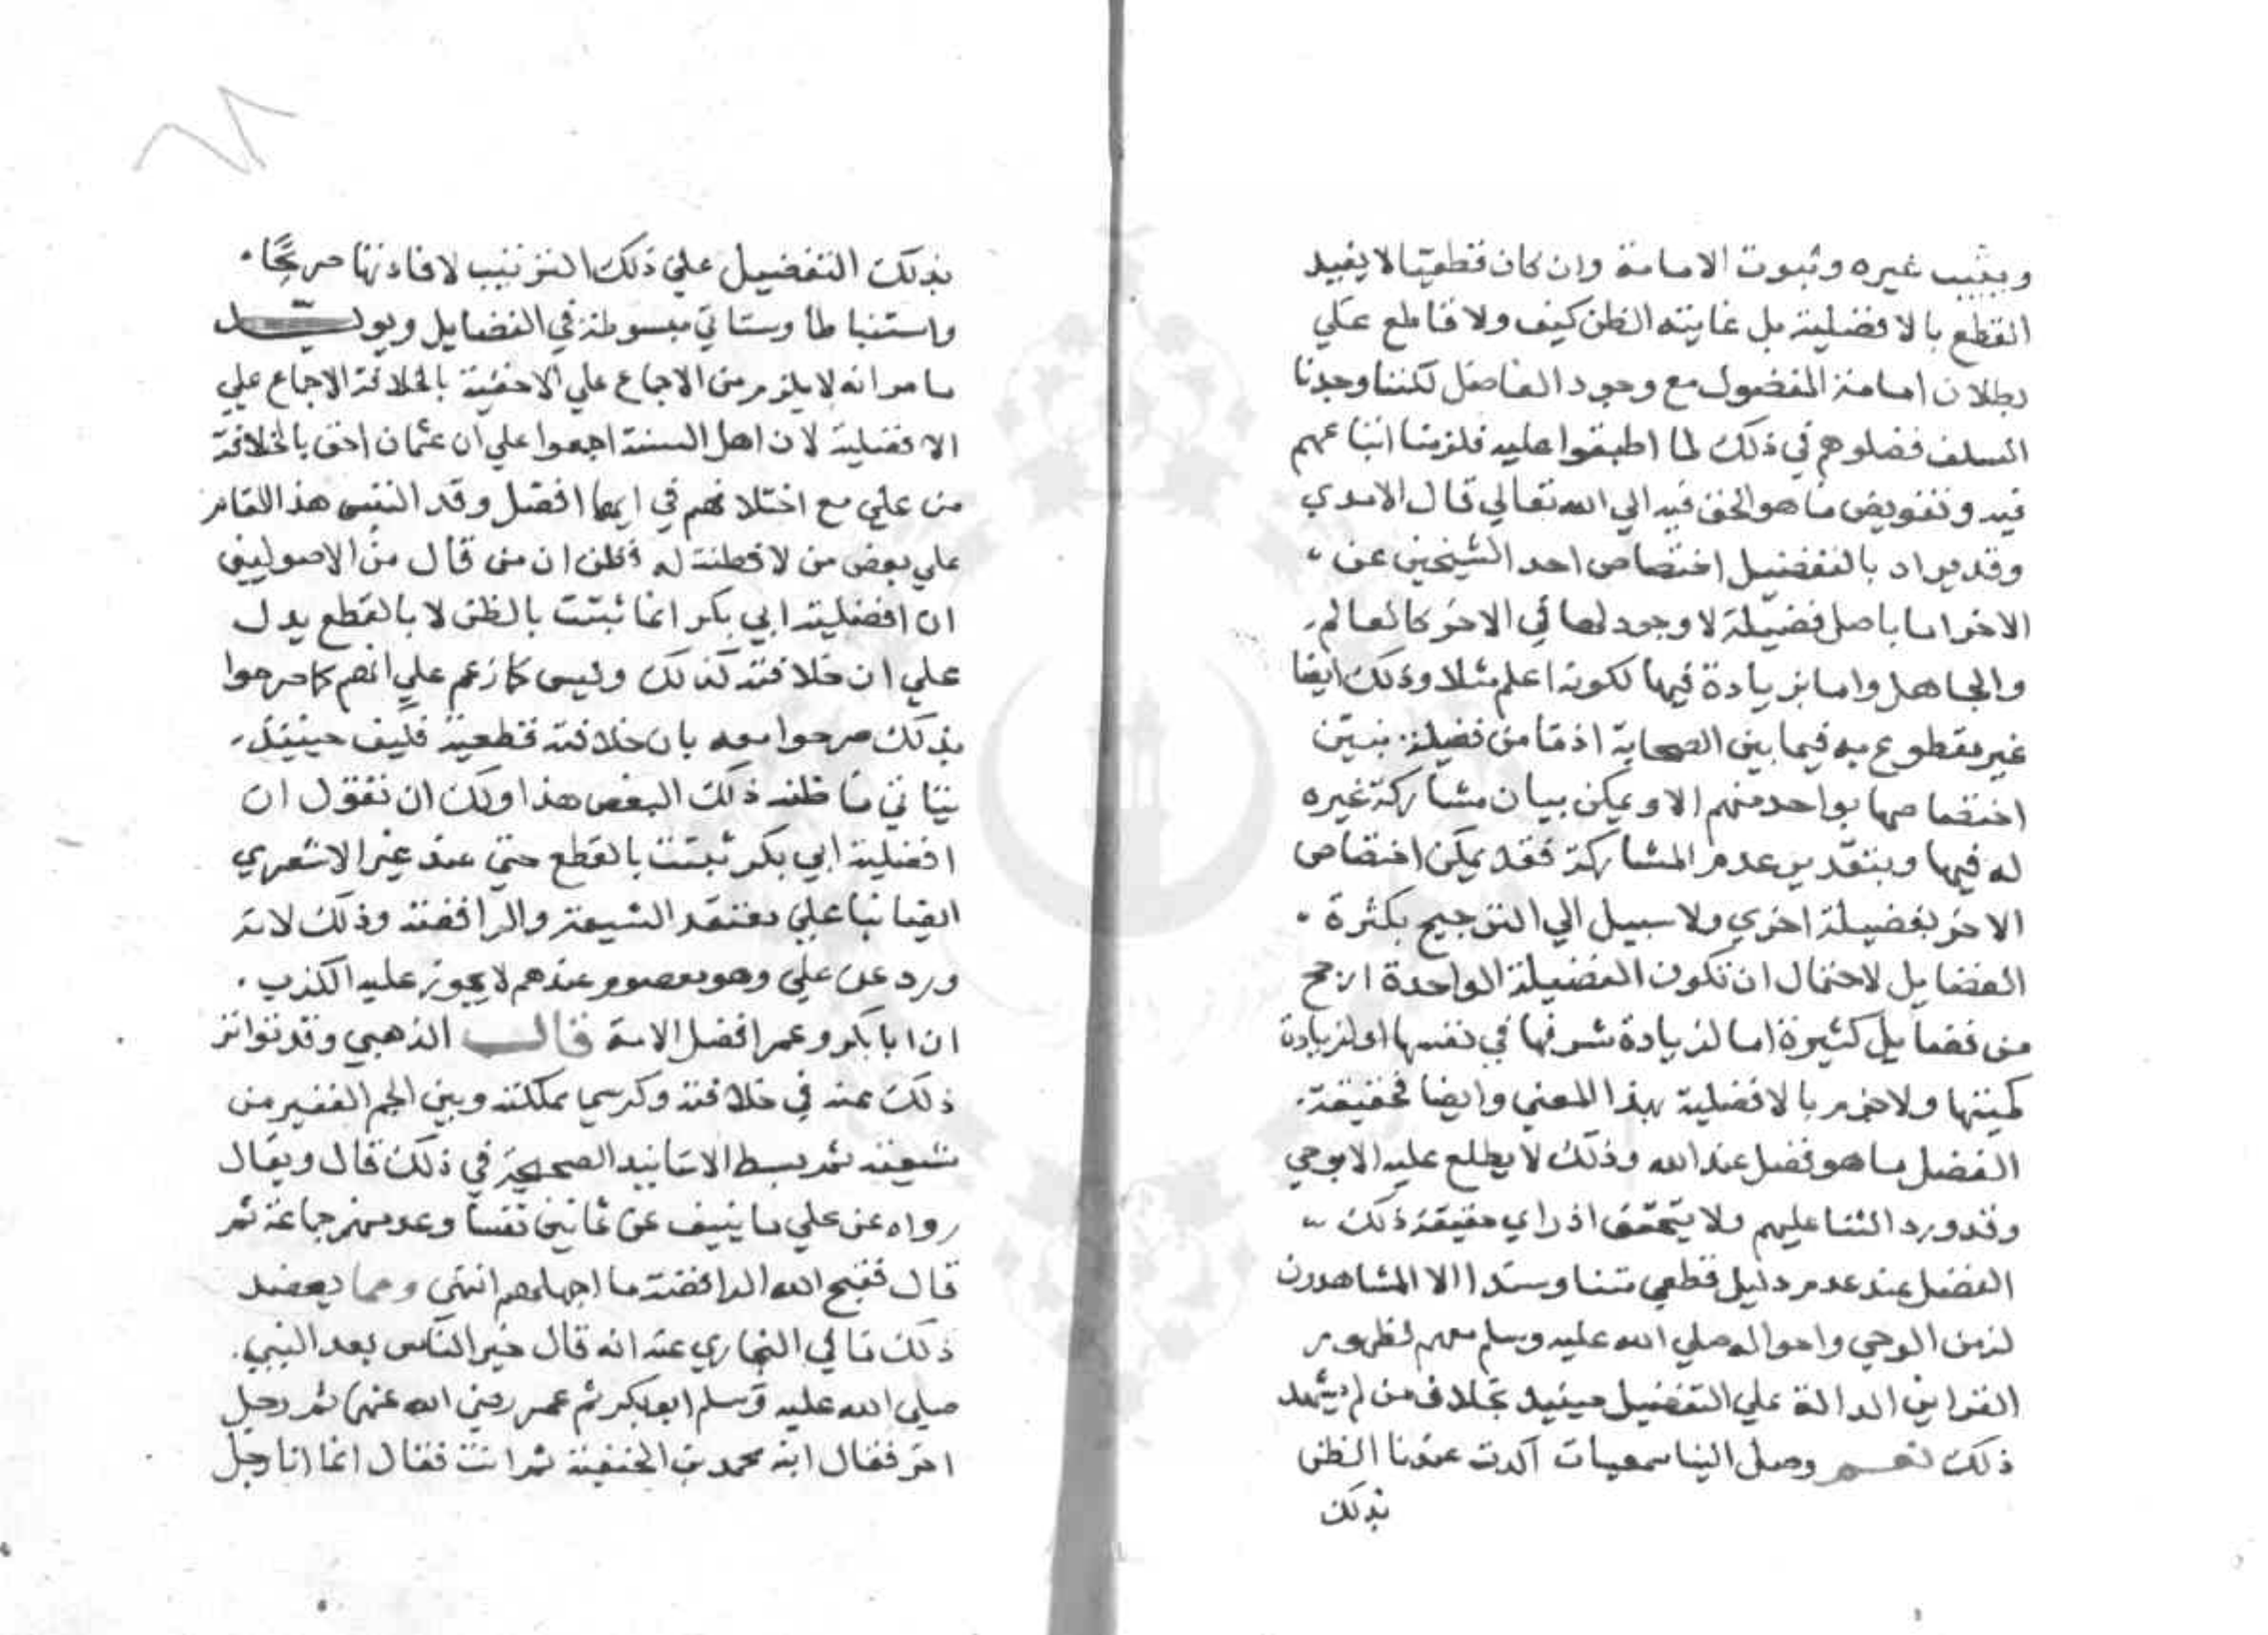 ويثيب غيره وثبوت الامامة وان كان قطعيا لا يفيد
القطع بالافضلية بل غايته الظن كيف ولا قاطع علي
بطلان امامة المفضول مع وجود الفاضل لكننا وجدنا
السلف فضلوهم في ذلك لما اطبقوا عليه فلزمنا اتباعهم
فيه وتفويض ما هو الحق فيه الي الله تعالي قال الامدي
وقد يراد بالتفضيل اختصاص احد الشيخين عن
الاخر اما باصل فضيلة لا وجود لها في الاخر كالعالم
والجاهل واما بزيادة فيها لكونه اعلم مثلا وذلك ايضا
غير مقطوع به فيما بين الصحابة اذ ما من فضيلة تبين
اختصاصها بواحد منهم الا ويمكن بيان مشاركة غيره
له فيها وبتقدير عدم المشاركة فقد يمكن اختصاص
الاخر بفضيلة اخري ولا سبيل الي الترجيح بكثرة
الفضايل لاحتمال ان تكون الفضيلة الواحدة ارجح
من فضايل كثيرة اما لزيادة شرفها في نفسها او لزيادة
كميتها ولا جزم بالافضلية بهذا المعني وايضا فحقيقة
الفضل ما هو فضل عند الله وذلك لا يطلع عليه الا بوحي
وقد ورد الثنا عليهم ولا يتحقق ادراي حقيقة ذلك
الفضل عند عدم دليل قطعي متنا وسندا الا المشاهدون
لزمن الوحي واحواله صلي الله عليه وسلم معهم لظهور
القراين الدالة علي التفضيل حينيذ بخلاف من لم يشهد
ذلك نعم وصل الينا سمعيات اكدت عندنا الظن
بذلك
بذلك التفضيل علي ذلك الترتيب لافادتها صريحا
واستنباطا وستاتي مبسوطة في الفضايل ويويد
ما مر انه لا يلزم من الاجماع علي الاحقية بالخلافة الاجماع علي
الافضلية لان اهل السنة اجمعوا علي ان عثمان احق بالخلافة
من علي مع اختلافهم في ايهما افضل وقد التبس هذا المقام
علي بعض من لا فطنة له فظن ان من قال من الاصوليين
ان افضلية ابي بكر انما ثبتت بالظن لا بالقطع يدل
علي ان خلافته كذلك وليس كما زعم علي انهم كما صرحوا
بذلك صرحوا معه بان خلافته قطعية فكيف حينيذ
يتاتي ما ظنه ذلك البعض هذا ولك ان تقول ان
افضلية ابي بكر ثبتت بالقطع حتي عند غير الاشعري
ايضا بنا علي معتقد الشيعة والرافضة وذلك لانه
ورد عن علي وهو معصوم عندهم لا يجوز عليه الكذب
ان ابا بكر وعمر افضل الامة قال الذهبي وقد تواتر
ذلك عنه في خلافته وكرسي مملكته وبين الجم الغفير من
شيعته ثم بسط الاسانيد الصحيحة في ذلك قال ويقال
رواه عن علي ما ينيف عن ثمانين نفسا وعد منهم جماعة ثم
قال فقبح الله الرافضة ما اجهلهم انتهي ومما يعضد
ذلك ما في البخاري عنه انه قال خير الناس بعد النبي
صلي الله عليه وسلم ابو بكر ثم عمر رضي الله عنهما ثم رجل
اخر فقال ابنه محمد بن الحنفية ثم انت فقال انما انا رجل